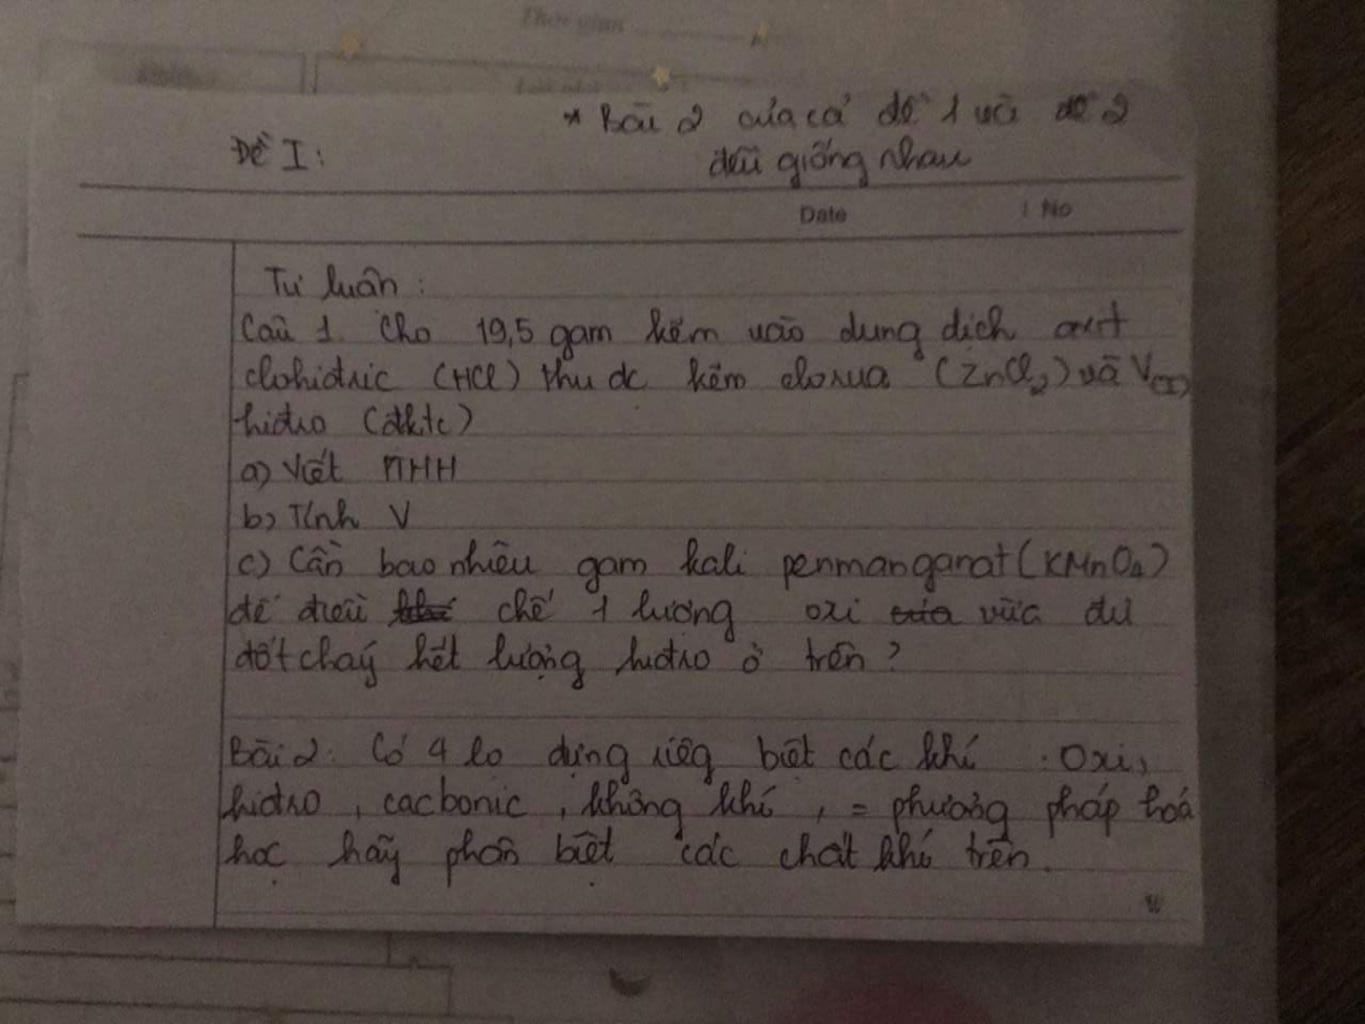 Thời gian
* Bài 2 của cả đề 1 và đề 2
Đề I:
đều giống nhau
Date
No
Tự luân:
Câu 1. Cho 19,5 gam kẽm vào dung dịch axit
clohiđric (HCl) thu đc kẽm clorua (ZnCl2) và V(l)
hiđro (đktc)
a) Viết PTHH
b) Tính V
c) Cần bao nhiêu gam kali penmanganat (KMnO4)
để điều chế 1 lượng oxi vừa đủ
đốt cháy hết lượng hiđro ở trên?
Bài 2: Có 4 lo đựng riêg biệt các khí : Oxi,
hiđro, cacbonic, không khí, = phương pháp hoá
học hãy phân biệt các chất khí trên.